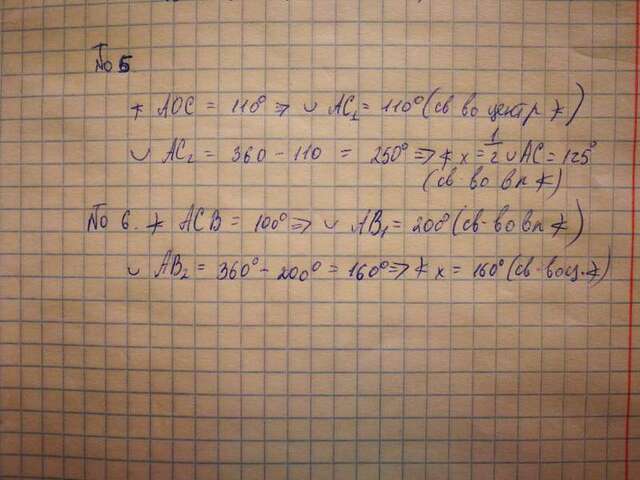 № 5
∠ AOC = 110° ⇒ ∪ AC₁ = 110° (св во центр ∠)
∪ AC₂ = 360 - 110 = 250° ⇒ ∠ x = 1/2 ∪ AC = 125°
(св-во вп ∠)
№ 6. ∠ ACB = 100° ⇒ ∪ AB₁ = 200° (св-во вп ∠)
∪ AB₂ = 360° - 200° = 160° ⇒ ∠ x = 160° (св-во ц. ∠)